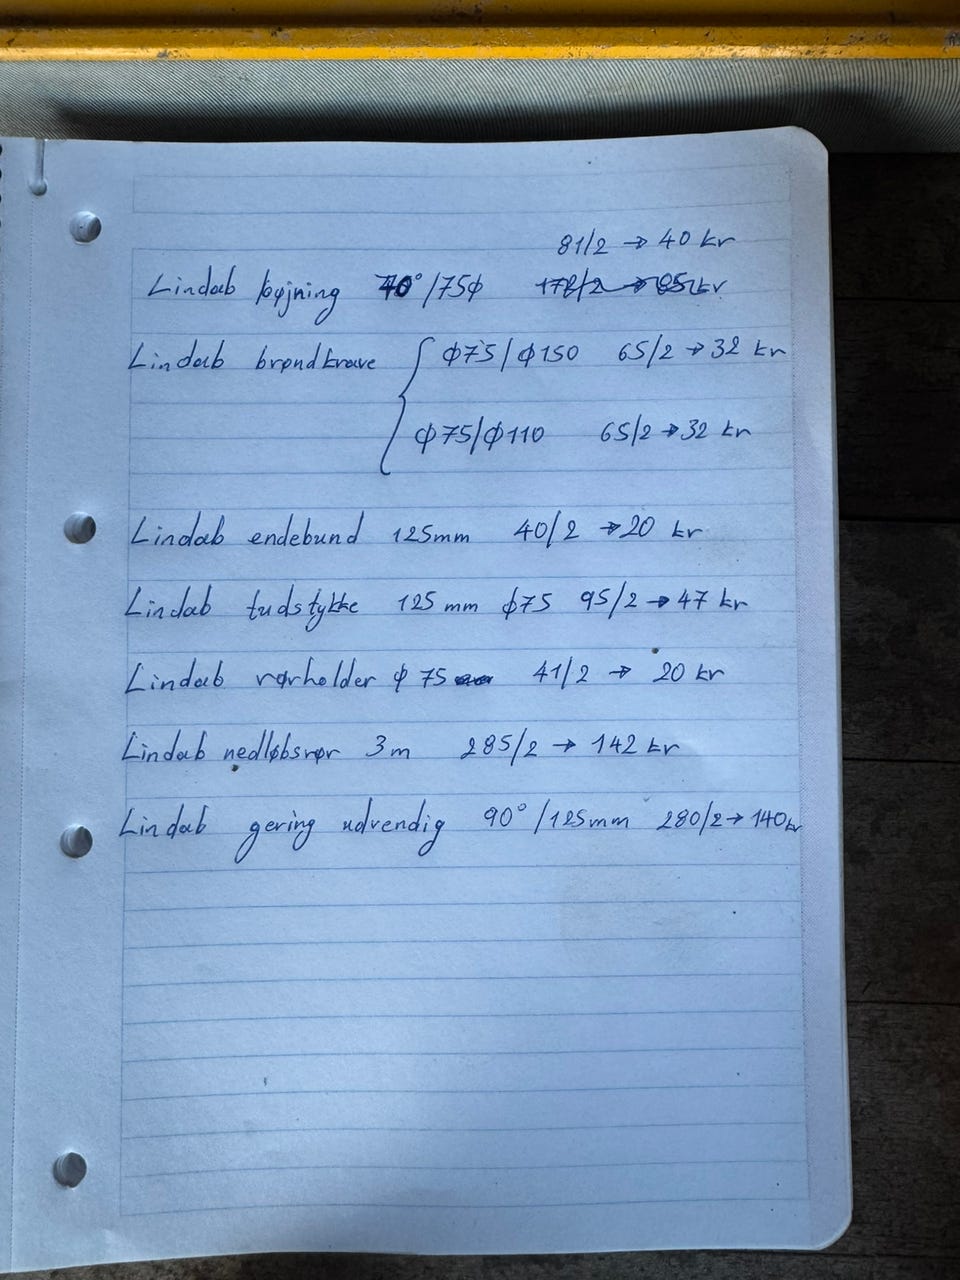 81/2 → 40 kr
Lindab bøjning 70°/75ϕ 178/2 → 85 kr
Lindab brøndkrave { ϕ75/ϕ150 65/2 → 32 kr
ϕ75/ϕ110 65/2 → 32 kr
Lindab endebund 125mm 40/2 → 20 kr
Lindab tudstykke 125 mm ϕ75 95/2 → 47 kr
Lindab rørholder ϕ 75 41/2 → 20 kr
Lindab nedløbsrør 3m 285/2 → 142 kr
Lindab gering udvendig 90°/125mm 280/2 → 140kr